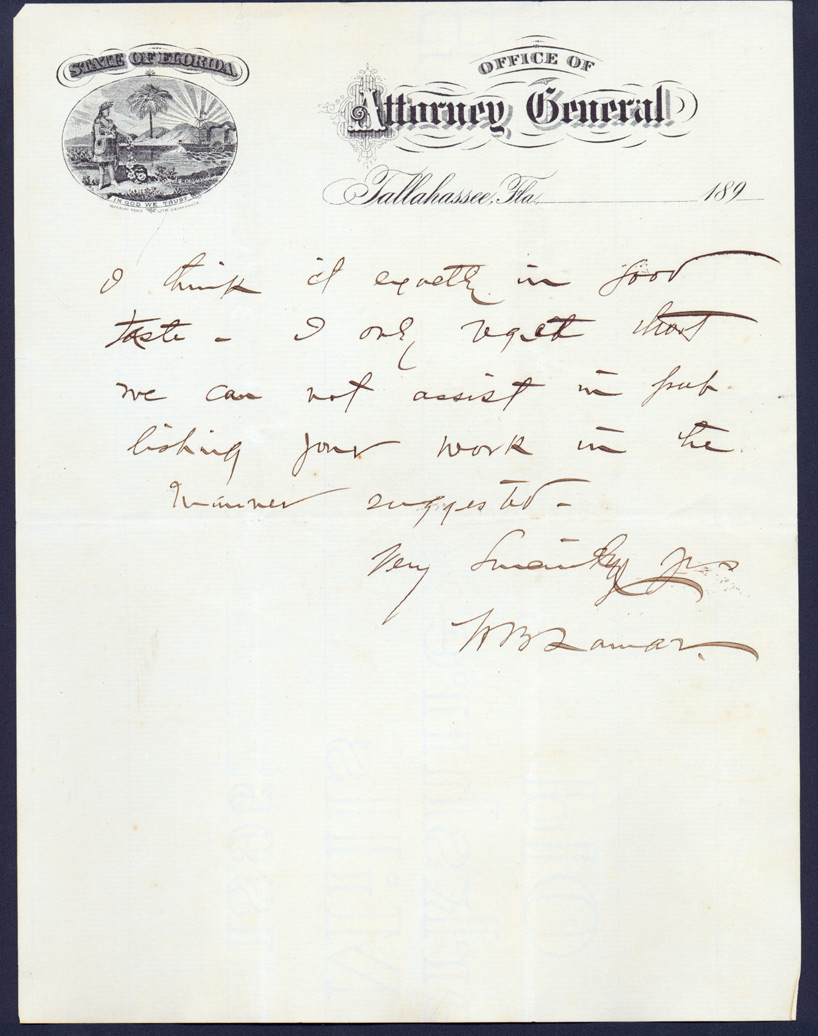 STATE OF FLORIDA
IN GOD WE TRUST
OFFICE OF
Attorney General
Tallahassee, Fla. 189
I think it exactly in good
taste - I only regret that
we can not assist in pub
lishing your work in the
manner suggested -
Very Sincerely yrs
W B Lamar.